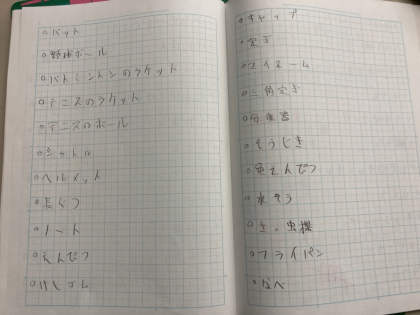 ○バット
○野球ボール
○バトミントンのラケット
○テニスのラケット
○テニスのボール
○シャトル
○ヘルメット
○長ぐつ
○ノート
○えんぴつ
○けしゴム
○キャップ
○定ぎ
○マイネーム
○三角定ぎ
○分度器
○そうじき
○色えんぴつ
○水そう
○フライパン
○なべ